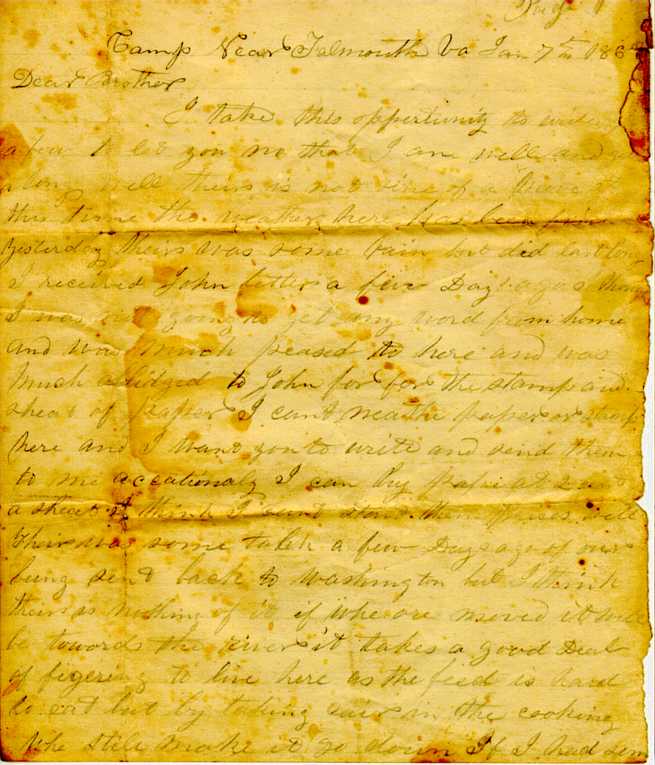 Page 1
Camp Near Falmouth Va Jan 7th 186
Dear Brother
I take this opportunity to write
a few to let you no that I am well and
along well theirs is not of a
this time the weather here has been fine
yesterday theirs was some rain but did last lon
I received John letter a few Days ago I
I was not going to get any word from home
and was much pleased to here and was
much abliged to John for for the stamp and
sheat of paper I cant paper or stamp
here and I want you to write and send them
to me accationaly I can by paper at 2
a sheat I think I cant stand the prices well
Their was some talk a few Days ago of our
being sent back to Washington but I think
theirs nothing of it if whe are moved it will
be towards the river it takes a good Deal
of figering to live here as the feed is hard
to eat but by taking in the cooking
whe still make it go down If I had som